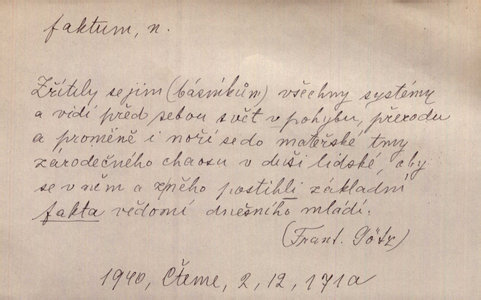 faktum, n.
Zřítily se jim (básníkům) všechny systémy
a vidí před sebou svět v pohybu, přerodu
a proměně i noří se do mateřské tmy
zárodečného chaosu v duši lidské, aby
se v něm a z něho postihli základní
fakta vědomí dnešního mládí.
(Frant. Götz)
1940, Čteme, 2, 12, 171a